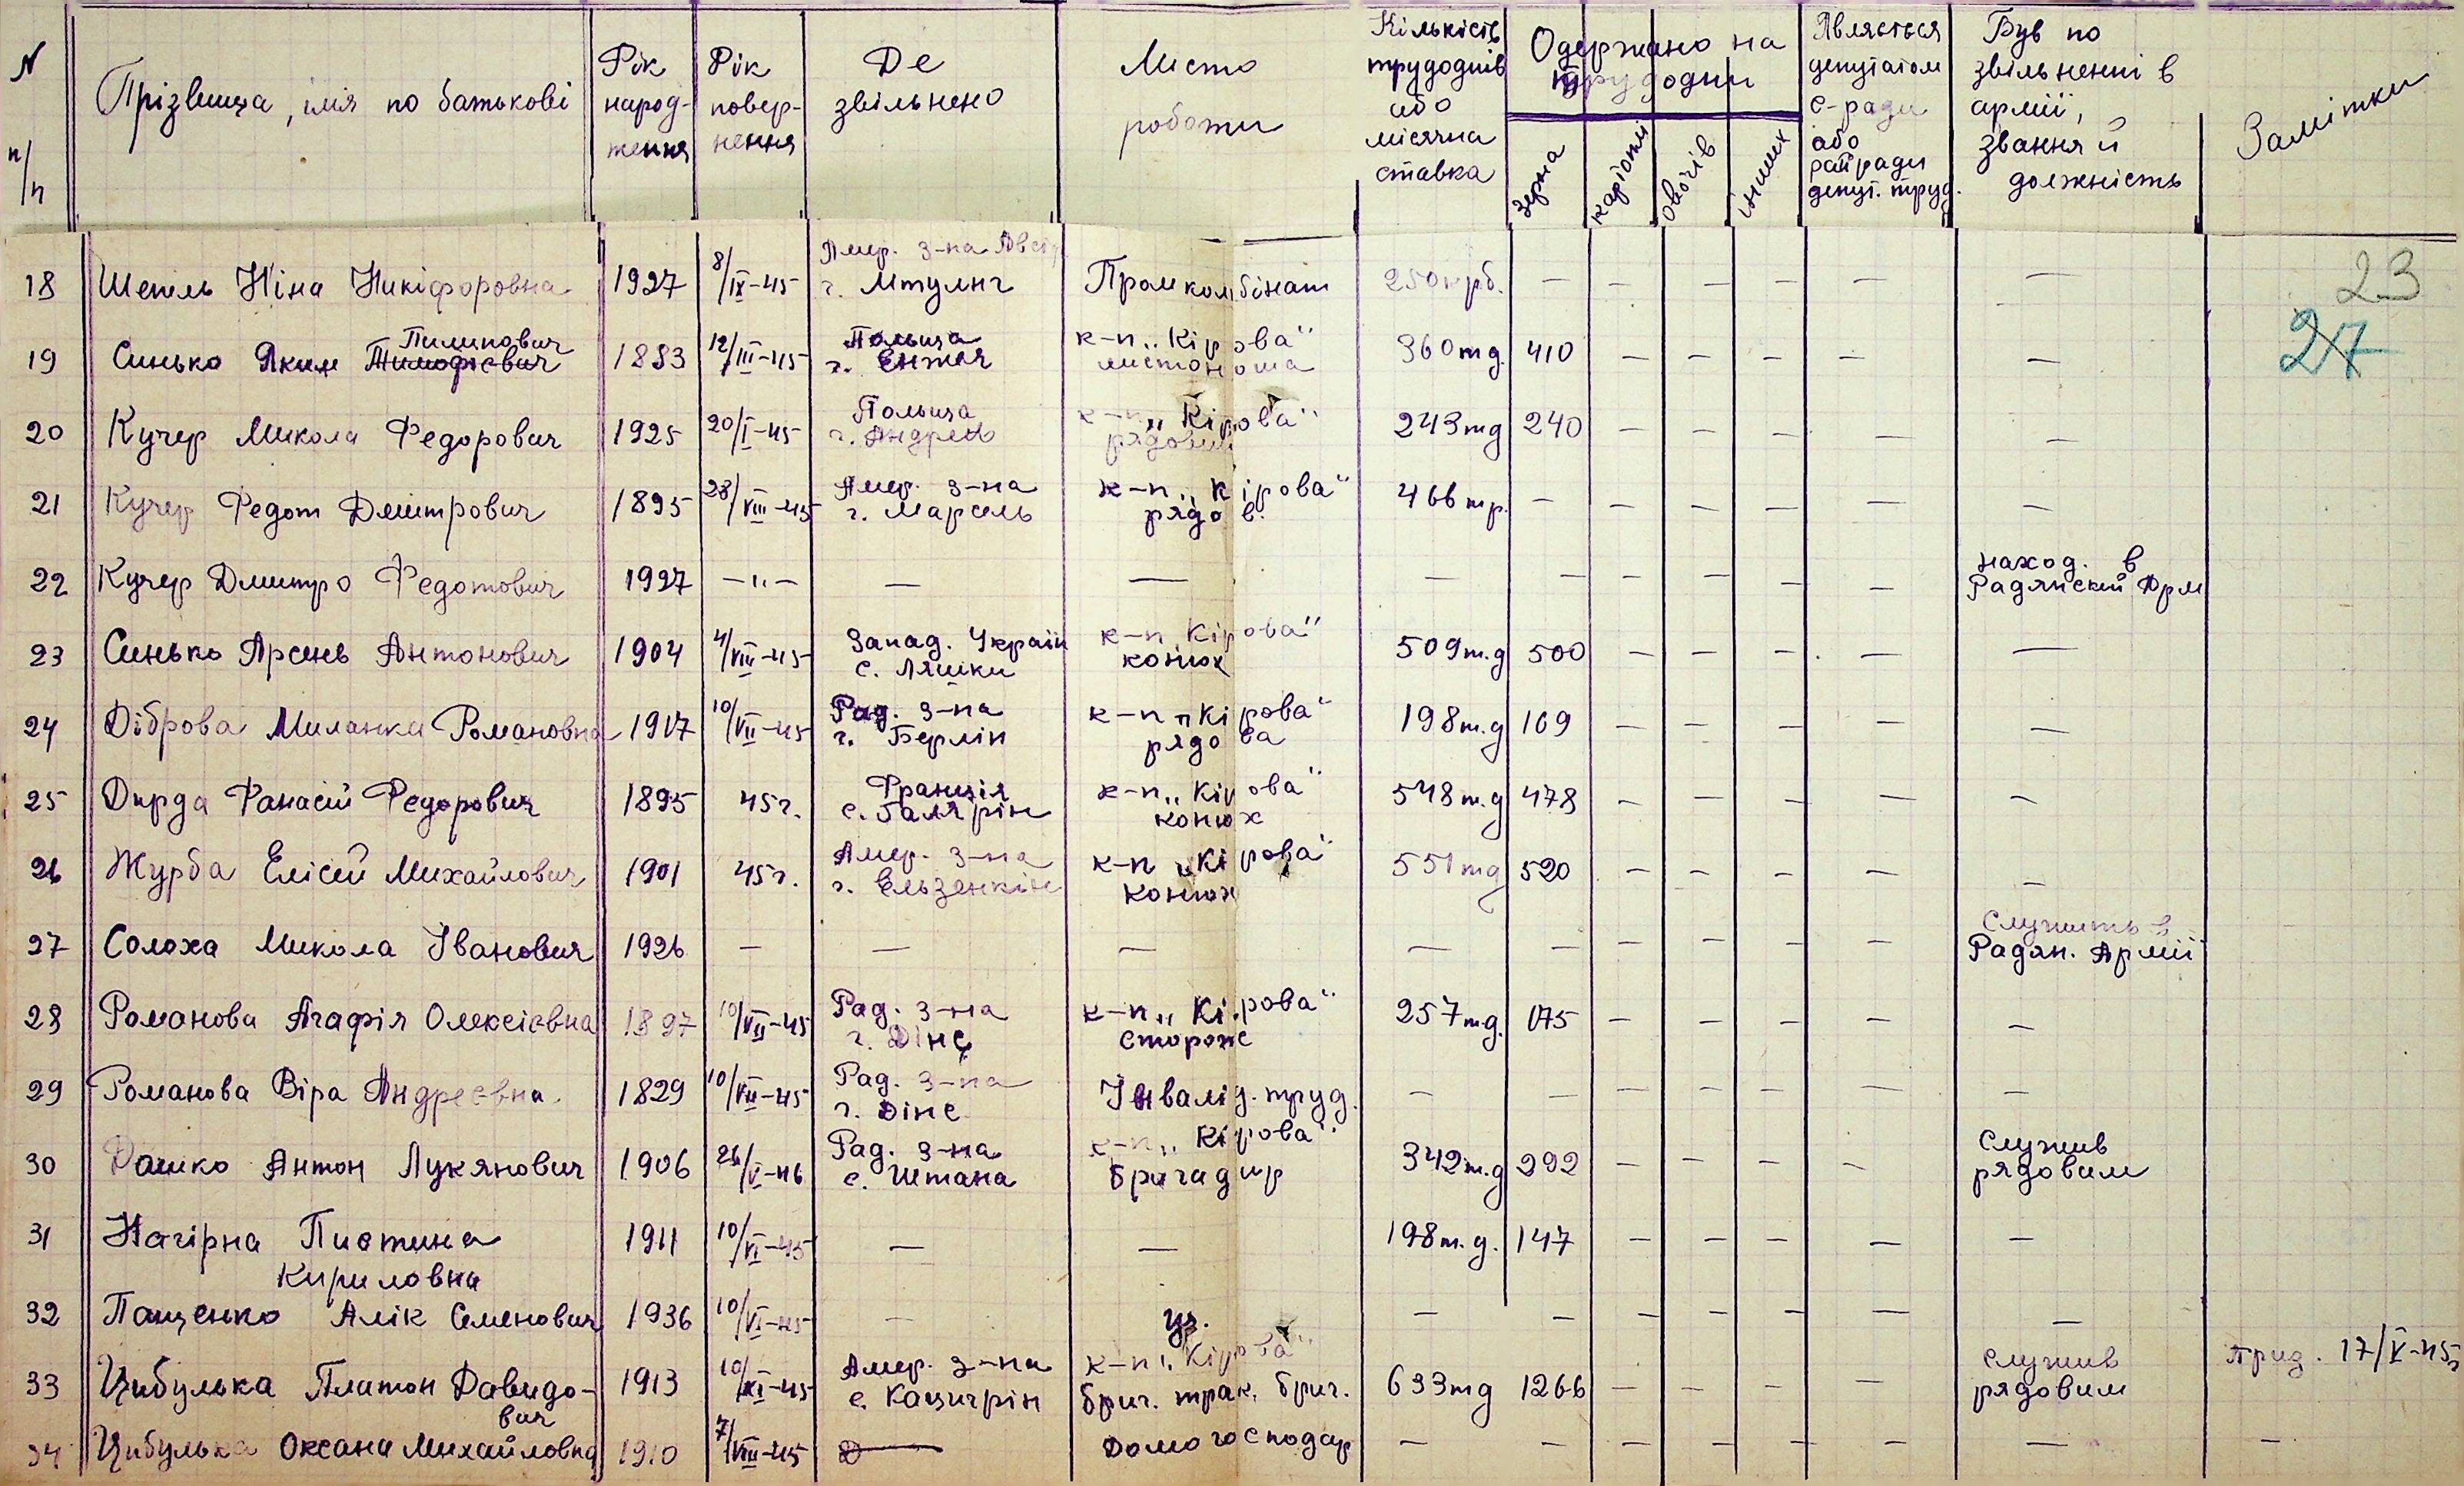 N п/п
Прізвища, імя по батькові
Рік народ-ження
Рік повер-нення
Де звільнено
Місто роботи
Кількість трудоднів або місячна ставка
Одержано на трудодни
зерна
картоплі
овочів
інших
Являється депутатом с-ради або райради депут. труд.
Був по звільненні в армії, звання й должність
Замітки
23
27
18 Шепель Ніна Никіфоровна 1927 8/IX-45 Амер. з-на г. Мтулнг Промкомбінат 250 крб. — — — — — —
19 Синько Яким Тимофієвич Пилипович 1883 12/III-45 Польща г. к-п „Кірова" листоноша 360 тд. 410 — — — — —
20 Кучер Микола Федорович 1925 20/I-45 Польща г. Андрей к-п „Кірова" рядовий 243 тд 240 — — — — —
21 Кучер Федот Дмитрович 1895 28/VIII-45 Амер. з-на г. Марсель к-п „Кірова" рядов. 466 тр. — — — — — —
22 Кучер Дмитро Федотович 1927 —"— — — — — — — — — наход. в Радянский Арм
23 Синько Арсень Антонович 1904 4/VIII-45 Запад. Україн с. Ляшки к-п Кірова" конюх 509 т.д 500 — — — — —
24 Діброва Миланка Романовна 1917 10/VII-45 Рад. з-на г. Берлін к-п „Кірова" рядова 198 т.д 169 — — — — —
25 Дирда Фанасий Федорович 1895 45 г. Франція с. Галярін к-п „Кірова" конюх 548 т.д 478 — — — — —
26 Журба Елісей Михайлович 1901 45 г. Амер. з-на г. Ельзенкін к-п „Кірова" конюх 551 тд 520 — — — — —
27 Солоха Микола Іванович 1926 — — — — — — — — — Служить в Радян. Армії
28 Романова Агафія Олексієвна 1897 10/VII-45 Рад. з-на г. Дінс к-п „Кірова" сторож 257 тд. 175 — — — — —
29 Романова Віра Андреєвна. 1829 10/VII-45 Рад. з-на г. Дінс Інвалід. труд. — — — — — — —
30 Дашко Антон Лукянович 1906 26/V-46 Рад. з-на с. Штана к-п „Кірова" бригадир 342 т.д 292 — — — — служив рядовим
31 Нагірна Пистина Кириловна 1911 10/VI-45 — — 198 т.д. 147 — — — — —
32 Пащенко Алік Семенович 1936 10/VI-45 — уч. — — — — — — —
33 Цибулька Платон Давидо-вич 1913 10/XI-45 Амер. з-на с. Кацигрін к-п „Кірова" бриг. трак. бриг. 633 тд 1266 — — — — служив рядовим приз. 17/V-45
34 Цибулька Оксана Михайловна 1910 7/VIII-45 — Домогосподар — — — — — — — —